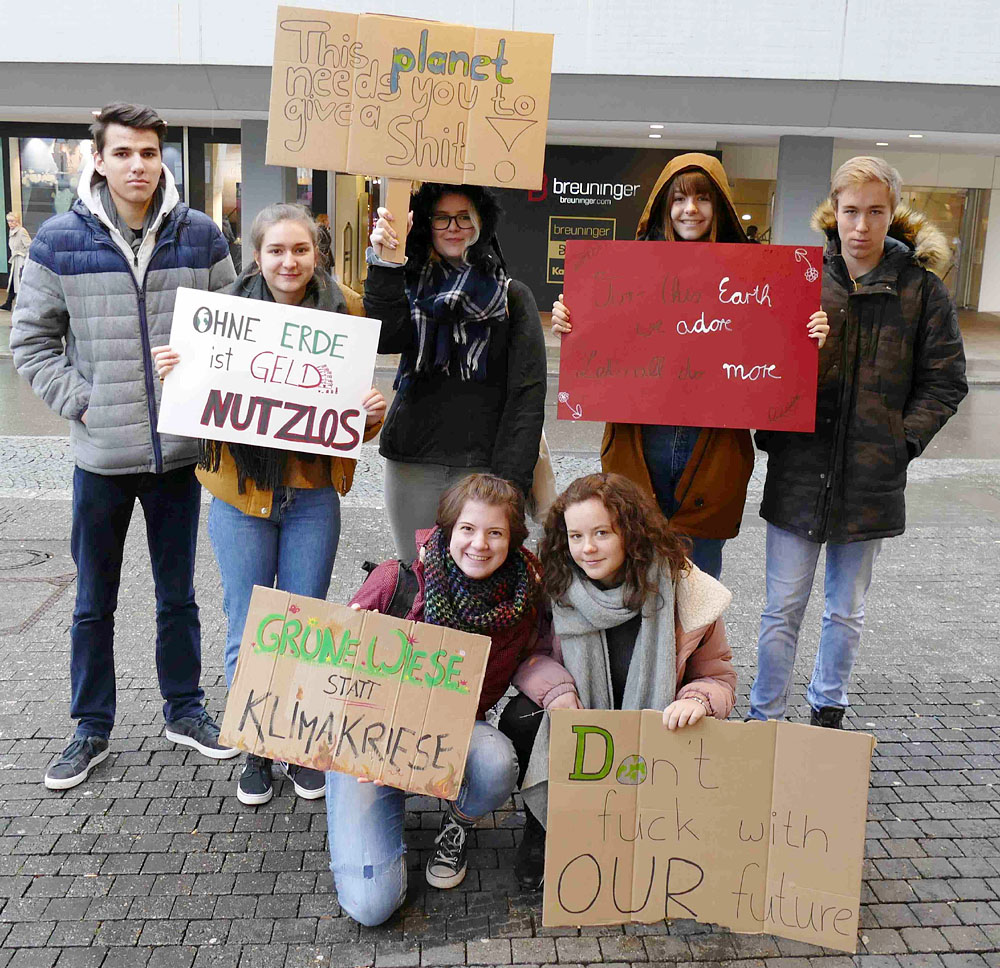 This planet
needs you to
give a Shit!
breuninger
breuninger.com
breuninger
OHNE ERDE
ist GELD
NUTZLOS
For this Earth
we adore
Let's all do more
GRÜNE WIESE
STATT
KLIMAKRIESE
Don't
fuck with
OUR future